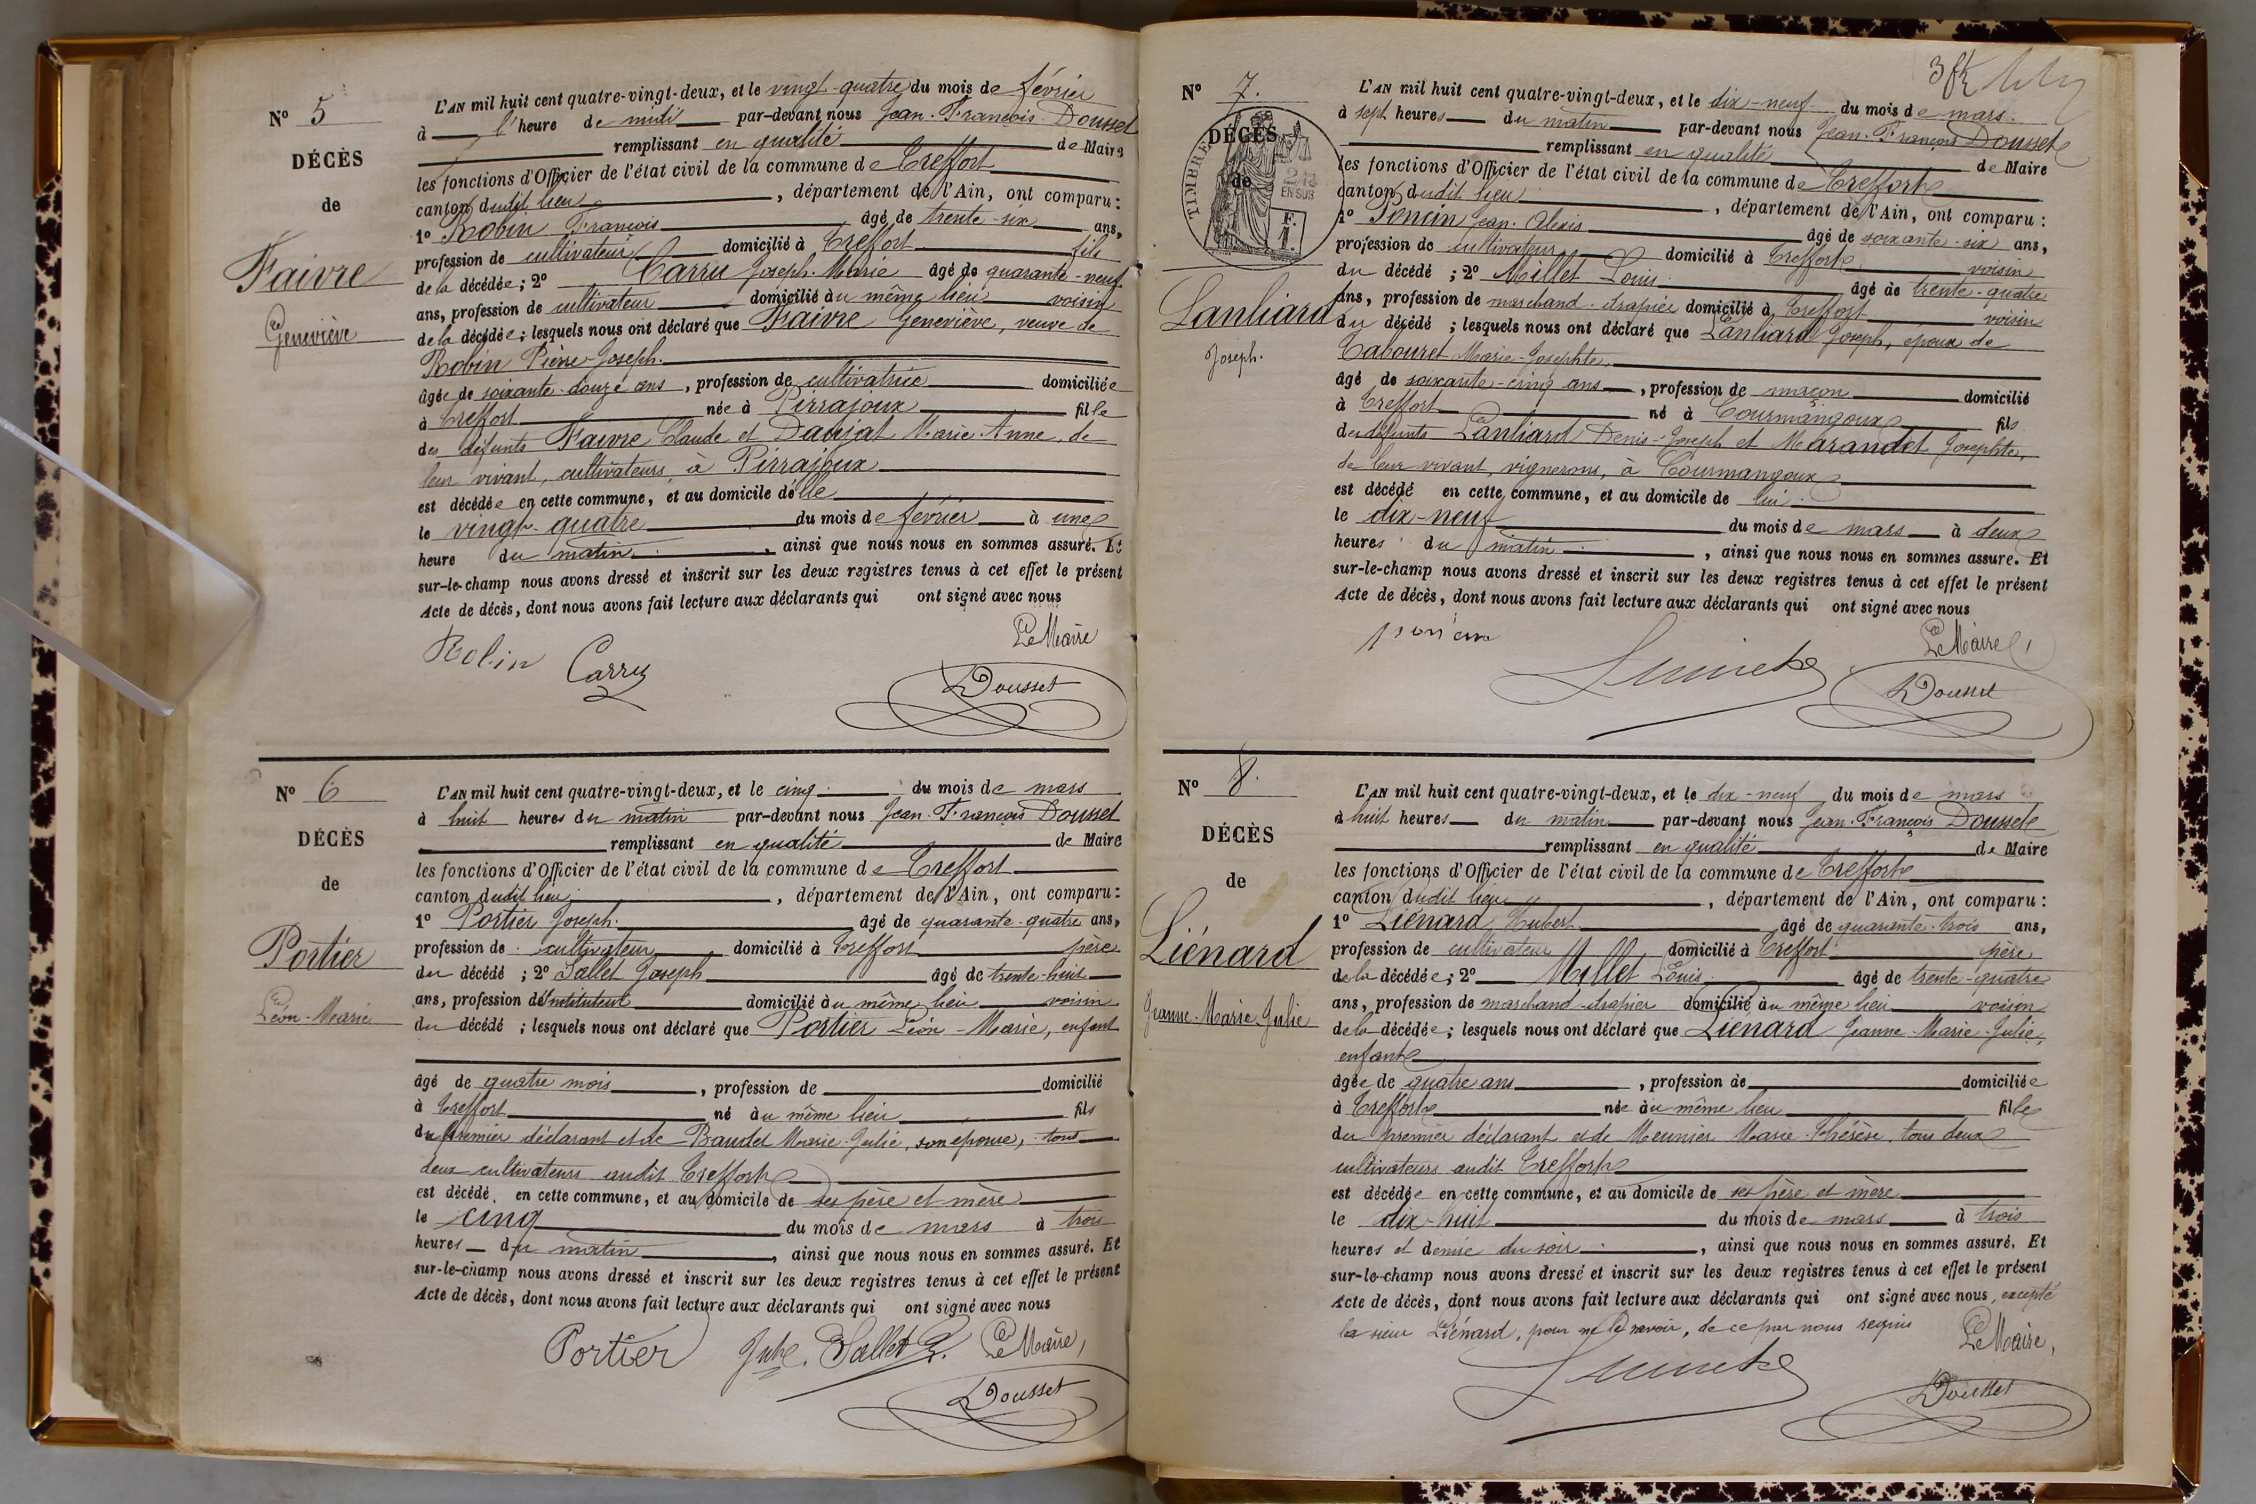 Nº 5
DÉCÈS
de
Faivre
Geneviève
L'AN mil huit cent quatre-vingt-deux, et le vingt-quatre du mois de février
à l'heure de midi par-devant nous Jean-François Dousset
remplissant en qualité de Maire
les fonctions d'Officier de l'état civil de la commune de Treffort
canton dudit lieu, département de l'Ain, ont comparu:
1º Robin François âgé de trente-six ans,
profession de cultivateur domicilié à Treffort fils
de la décédée; 2º Carru Joseph-Marie âgé de quarante-neuf
ans, profession de cultivateur domicilié au même lieu voisin
de la décédée; lesquels nous ont déclaré que Faivre Geneviève, veuve de
Robin Pierre-Joseph.
âgée de soixante-douze ans, profession de cultivatrice domiciliée
à Treffort née à Pirrajoux fille
des défunts Faivre Claude et Daujat Marie-Anne, de
leur vivant, cultivateurs, à Pirrajoux
est décédée en cette commune, et au domicile d'elle
le vingt-quatre du mois de février à une
heure du matin, ainsi que nous nous en sommes assuré. Et
sur-le-champ nous avons dressé et inscrit sur les deux registres tenus à cet effet le présent
Acte de décès, dont nous avons fait lecture aux déclarants qui ont signé avec nous
Le Maire
Robin Carru
Dousset
Nº 6
DÉCÈS
de
Portier
Léon-Marie
L'AN mil huit cent quatre-vingt-deux, et le cinq du mois de mars
à huit heures du matin par-devant nous Jean-François Dousset
remplissant en qualité de Maire
les fonctions d'Officier de l'état civil de la commune de Treffort
canton dudit lieu, département de l'Ain, ont comparu:
1º Portier Joseph. âgé de quarante-quatre ans,
profession de cultivateur domicilié à Treffort père
du décédé; 2º Sallet Joseph âgé de trente-huit
ans, profession d'Instituteur domicilié au même lieu voisin
du décédé; lesquels nous ont déclaré que Portier Léon-Marie, enfant
âgé de quatre mois, profession de domicilié
à Treffort né au même lieu fils
du premier déclarant et de Baudet Marie-Julie, son épouse, tous
deux cultivateurs audit Treffort
est décédé en cette commune, et au domicile de ses père et mère
le cinq du mois de mars à trois
heures du matin, ainsi que nous nous en sommes assuré. Et
sur-le-champ nous avons dressé et inscrit sur les deux registres tenus à cet effet le présent
Acte de décès, dont nous avons fait lecture aux déclarants qui ont signé avec nous
Portier Sallet Le Maire,
Dousset
Nº 7.
DÉCÈS
de
TIMBRE
EN SUS
F.
1.
Lanliard
Joseph.
L'AN mil huit cent quatre-vingt-deux, et le dix-neuf du mois de mars.
à sept heures du matin par-devant nous Jean-François Dousset
remplissant en qualité de Maire
les fonctions d'Officier de l'état civil de la commune de Treffort
canton dudit lieu, département de l'Ain, ont comparu:
1º Poncin Jean-Alexis âgé de soixante-six ans,
profession de cultivateur domicilié à Treffort voisin
du décédé; 2º Millet Louis âgé de trente-quatre
ans, profession de marchand-drapier domicilié à Treffort voisin
du décédé; lesquels nous ont déclaré que Lanliard Joseph, époux de
Tabouret Marie-Josephte,
âgé de soixante-cinq ans, profession de maçon domicilié
à Treffort né à Courmangoux fils
des défunts Lanliard Denis-Joseph et Marandet Josephte,
de leur vivant, vignerons, à Courmangoux
est décédé en cette commune, et au domicile de lui
le dix-neuf du mois de mars à deux
heures du matin, ainsi que nous nous en sommes assuré. Et
sur-le-champ nous avons dressé et inscrit sur les deux registres tenus à cet effet le présent
Acte de décès, dont nous avons fait lecture aux déclarants qui ont signé avec nous
Le Maire,
Dousset
Nº 8.
DÉCÈS
de
Liénard
Jeanne-Marie-Julie
L'AN mil huit cent quatre-vingt-deux, et le dix-neuf du mois de mars
à huit heures du matin par-devant nous Jean-François Dousset
remplissant en qualité de Maire
les fonctions d'Officier de l'état civil de la commune de Treffort
canton dudit lieu, département de l'Ain, ont comparu:
1º Liénard Hubert âgé de quarante-trois ans,
profession de cultivateur domicilié à Treffort père
de la décédée; 2º Millet Louis âgé de trente-quatre
ans, profession de marchand-drapier domicilié au même lieu voisin
de la décédée; lesquels nous ont déclaré que Liénard Jeanne-Marie-Julie,
enfant
âgée de quatre ans, profession de domiciliée
à Treffort née au même lieu fille
du premier déclarant et de Meunier Marie-Thérèse, tous deux
cultivateurs audit Treffort
est décédée en cette commune, et au domicile de ses père et mère
le dix-huit du mois de mars à trois
heures et demie du soir, ainsi que nous nous en sommes assuré. Et
sur-le-champ nous avons dressé et inscrit sur les deux registres tenus à cet effet le présent
Acte de décès, dont nous avons fait lecture aux déclarants qui ont signé avec nous, excepté
le sieur Liénard, pour ne le savoir, de ce par nous requis
Le Maire,
Dousset